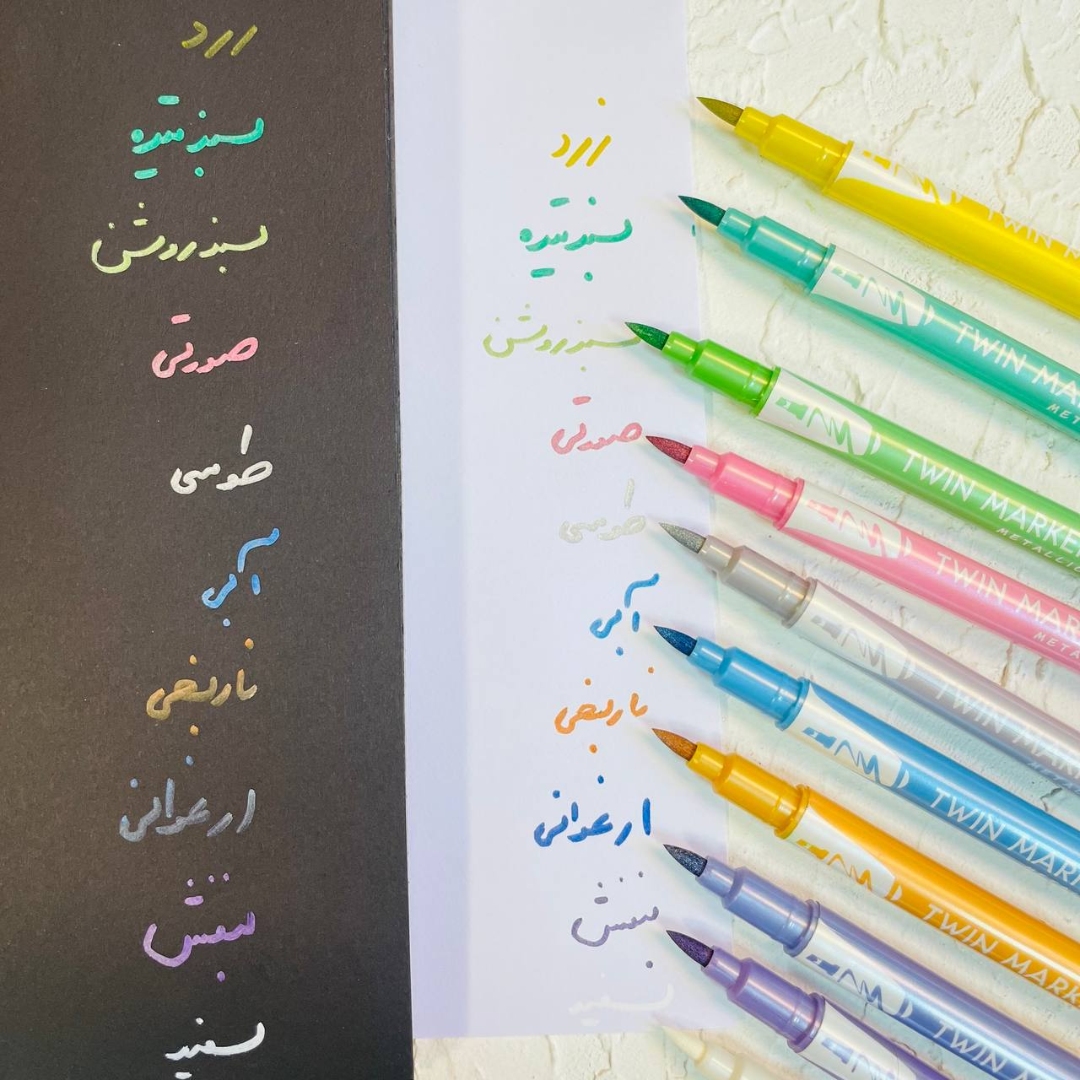 زرد
سبز تیره
سبز روشن
صورتی
طوسی
آبی
نارنجی
ارغوانی
بنفش
سفید
زرد
سبز تیره
سبز روشن
صورتی
طوسی
آبی
نارنجی
ارغوانی
بنفش
سفید
TWIN M
TWIN MA
MET
TWIN MARKE
METALLIC
TWIN MAR
META
TWIN MARK
TWIN MARK
TWIN MARK
TWIN MARK